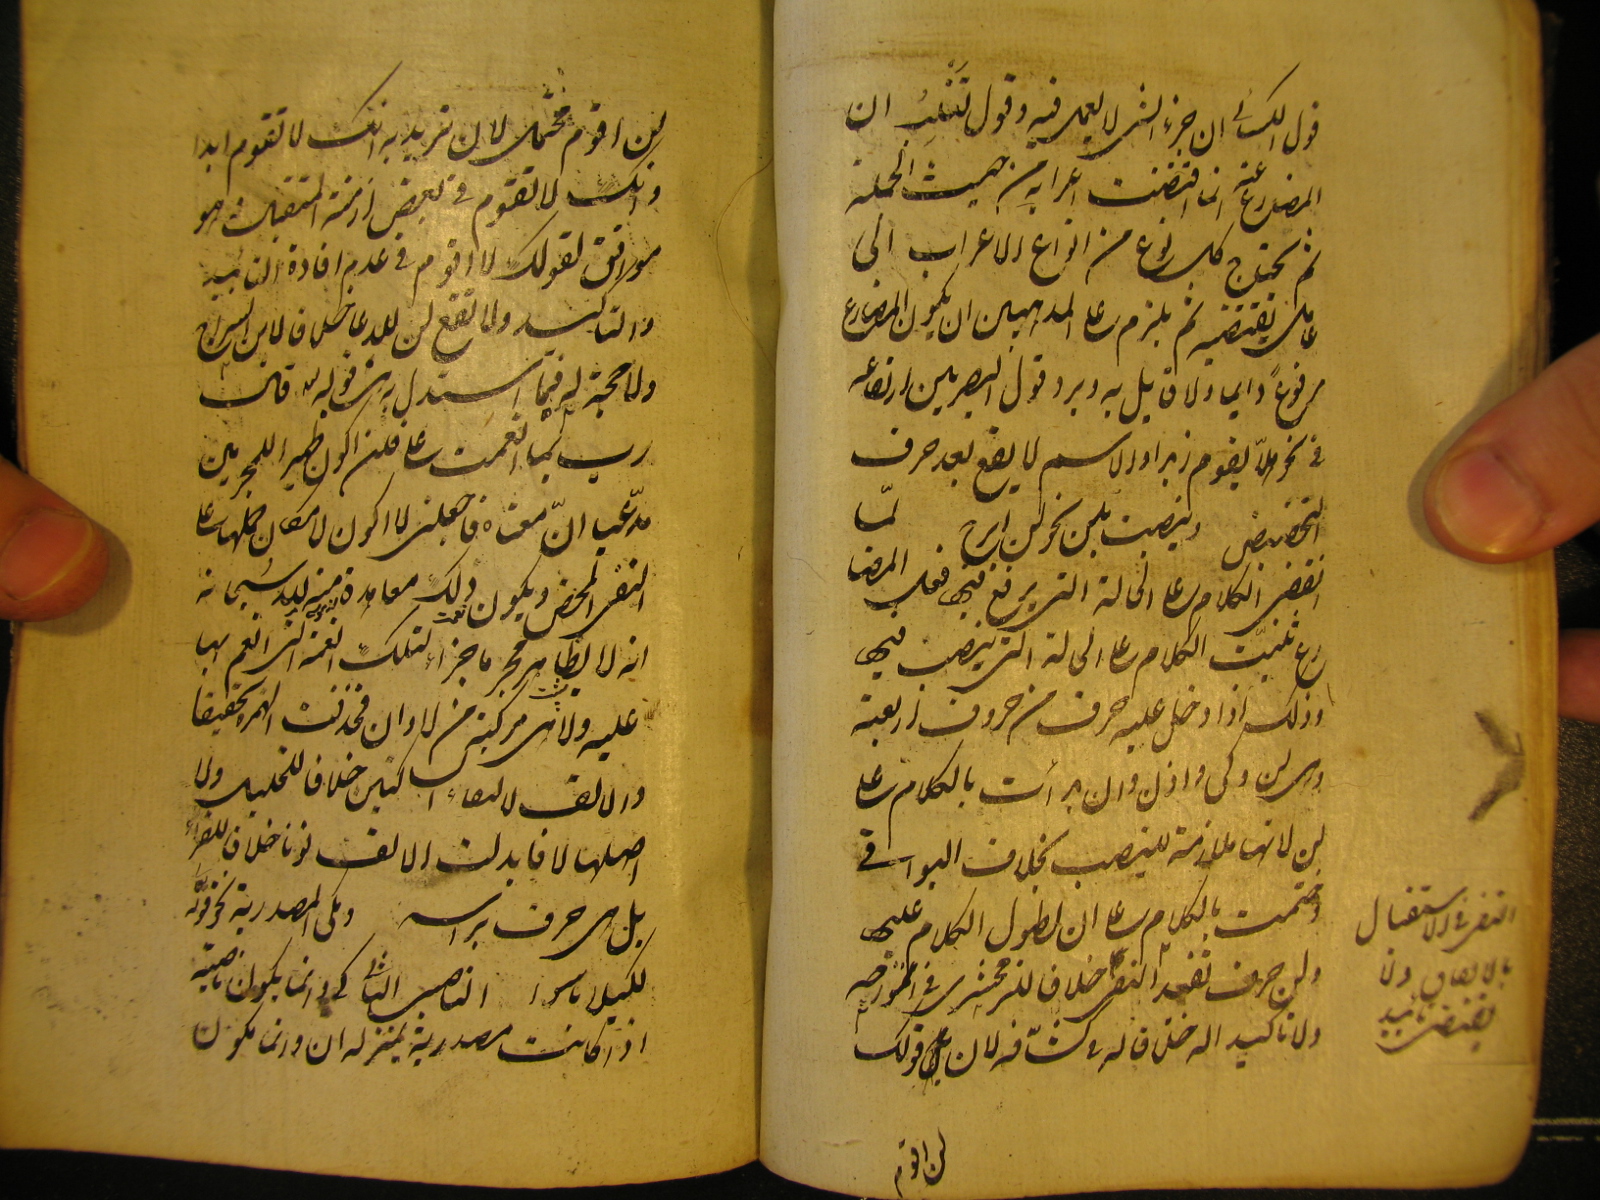 قول الكسائي ان جزء الشي لا يعمل فيه وقول ثعلب ان
المضارعة انما اقتضت اعرابه من حيث الجملة
ثم يحتاج كل نوع من انواع الاعراب الى
عامل يقتضيه ثم يلزم على المذهبين ان يكون المضارع
مرفوعا دايما ولا قايل به ويرد قول البصريين ارتفاعه
في نحو هلا يقوم زيد اذ الاسم لا يقع بعد حرف
التحضيض وينصب بلن نحو لن ابرح لما
انقضى الكلام على الحالة التي يرفع فيها فعل المضا
رع ثنيت الكلام على الحالة التي ينصب فيها
وذلك اذا دخل عليه حرف من حروف اربعة
وهي لن وكي واذن وان بدات بالكلام على
لن لانها ملازمة للنصب بخلاف البواقي
وختمت بالكلام على ان لطول الكلام عليها
ولن حرف تفيد النفي خلافا للزمخشري في انموذجه
ولا تاكيد اله خلافا له في كشافه لان قولك
النفي في الاستقبال
بالاتفاق ولا
يقتضي تابيد
لن اقوم
لن اقوم محتمل لان تريد به انك لا تقوم ابدا
وانك لا تقوم في بعض ازمنة المستقبل وهو
موافق لقولك لا اقوم في عدم افادة التابيد
والتاكيد ولا تقع لن للدعا خلافا لابن السراج
ولا حجة له فيما استدل به من قوله قال
رب بما انعمت علي فلن اكون ظهيرا للمجرمين
مدعيا ان معناه فاجعلني لا اكون لامكان حملها على
النفي المحض ويكون ذلك معاهدة منه لله سبحانه
انه لا يظاهر مجرما جزاء لتلك النعمة التي انعم بها
عليه ولا هي مركبة من لا وان فحذفت الهمزة تخفيفا
والالف لالتقاء الساكنين خلافا للخليل ولا
اصلها لا فابدلت الالف نونا خلافا للفراء
بل هي حرف براسه وبكي المصدرية نحو قوله
لكيلا تاسوا الناصب الثاني كي وانما يكون ناصبة
اذا كانت مصدرية بمنزلة ان وانما يكون